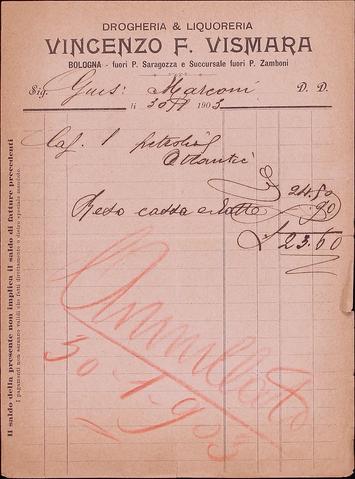 DROGHERIA & LIQUORERIA
VINCENZO F. VISMARA
BOLOGNA - fuori P. Saragozza e Succursale fuori P. Zamboni
Sig. Marconi D. D.
li 30 1903
1
Atlantic
24.50
Reso cassa e latte 90
£ 23.60
Annullato
30-1-903
Il saldo della presente non implica il saldo di fatture precedenti
I pagamenti non saranno validi che fatti direttamente o dietro speciale mandato.